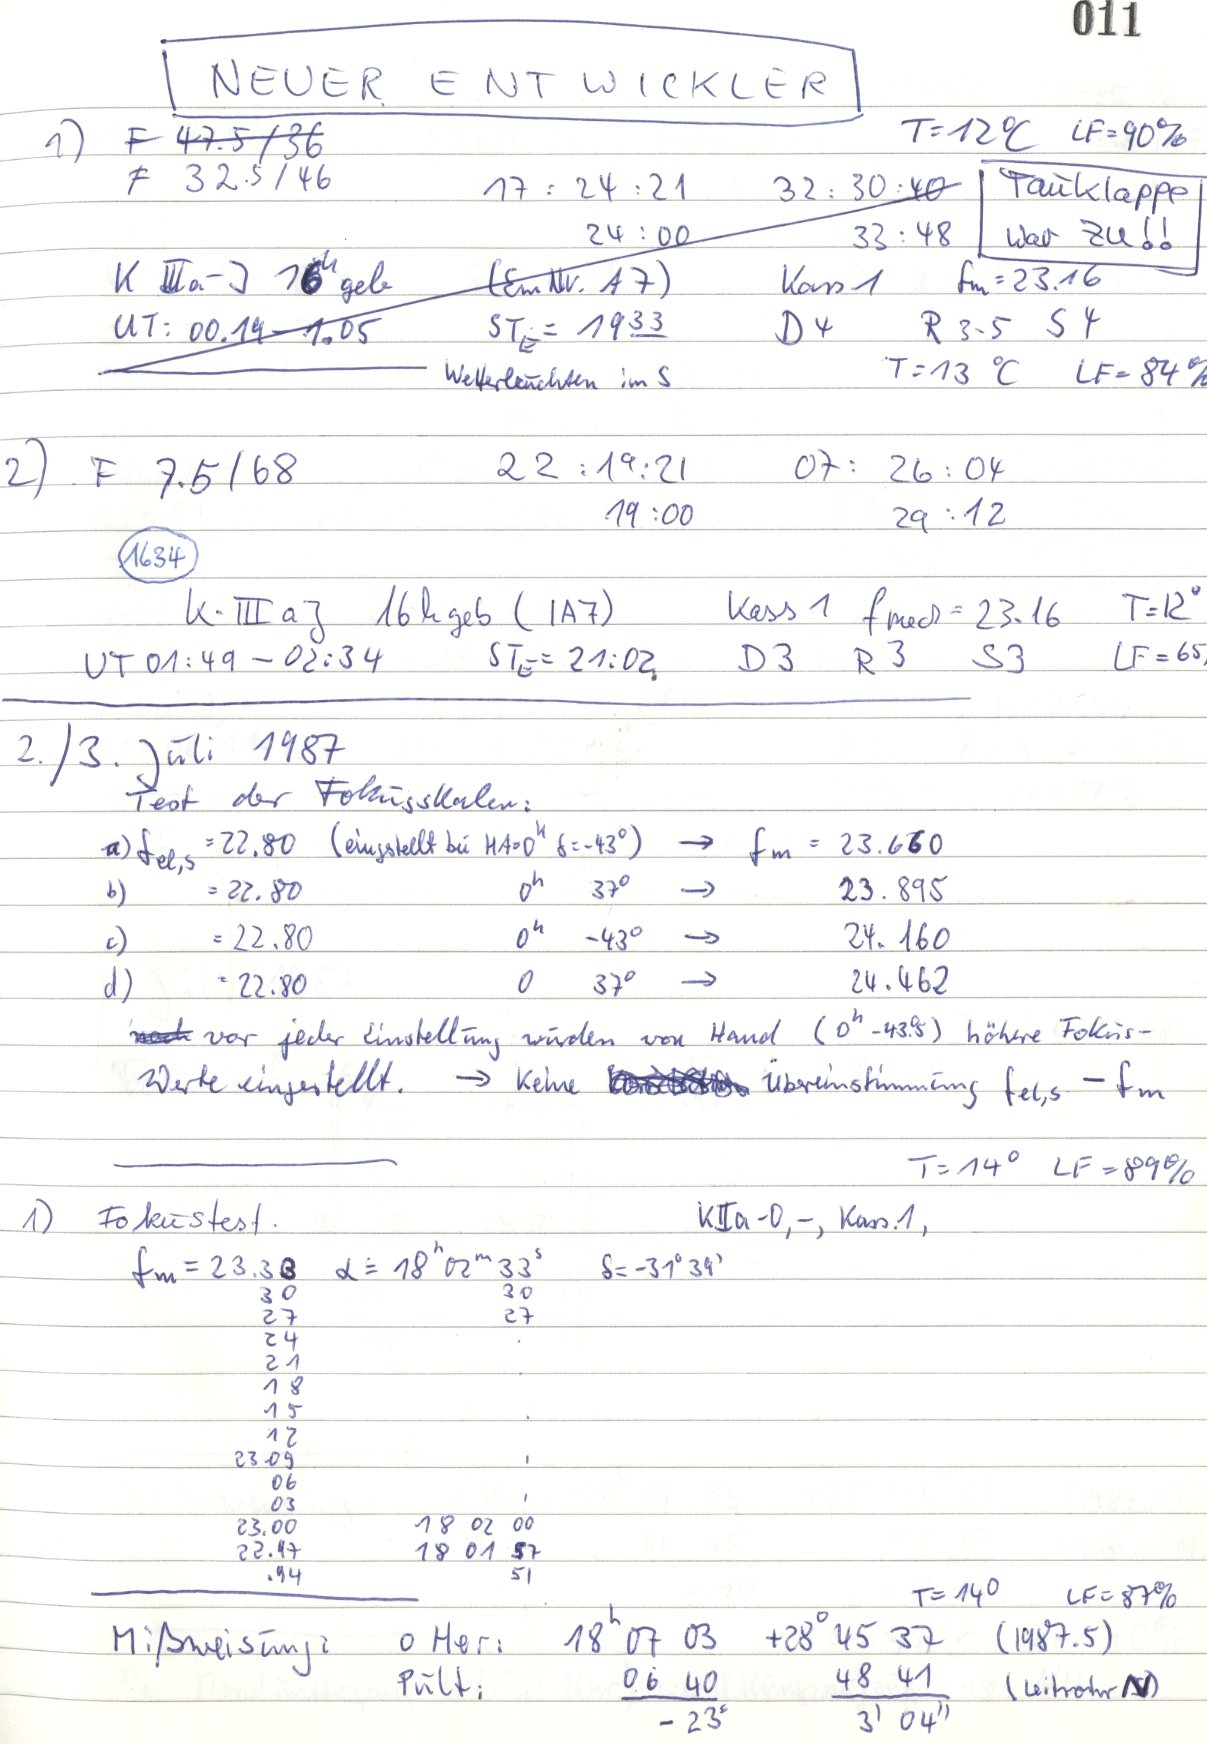 011
NEUER ENTWICKLER
1) F 47.5/36 T=12°C LF=90%
F 32.5/46 17:24:21 32:30:40 Tauklappe
24:00 33:48 war ZU!!
K IIIa-J 16h geb (Em Nr. 1A7) Kass 1 fm=23.16
UT: 00.19-1.05 STE= 1933 D4 R 3-5 S 4
Wetterleuchten im S T=13°C LF=84%
2) F 7.5/68 22:19:21 07:26:04
19:00 29:12
1634
K-IIIaJ 16h geb (1A7) Kass 1 fmed=23.16 T=12°
UT 01:49-02:34 STE=21:02 D3 R3 S3 LF=65
2./3. Juli 1987
Test der Fokusskalen:
a) fel,s =22.80 (eingestellt bei HA=0h δ=-43°) → fm = 23.660
b) =22.80 0h 37° → 23.895
c) =22.80 0h -43° → 24.160
d) =22.80 0 37° → 24.462
noch vor jeder Einstellung wurden von Hand (0h -43°.5) höhere Fokus-
Werte eingestellt. → Keine Übereinstimmung fel,s - fm
T=14° LF=89%
1) Fokustest. KIIa-O,-, Kass.1,
fm=23.33 α=18h02m33s δ=-31°39'
30 30
27 27
24
21
18
15
12
23.09
06
03
23.00 18 02 00
22.97 18 01 57
.94 51
T=14° LF=87%
Mißweisung: o Her: 18h 07 03 +28° 45 37 (1987.5)
Pult: 06 40 48 41 (Leitrohr N)
-23s 3' 04"